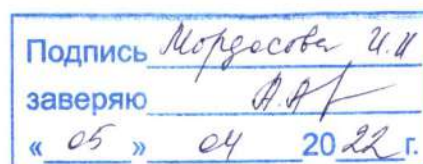 Подпись Мордасова И.И
заверяю
« 05 » 04 2022 г.